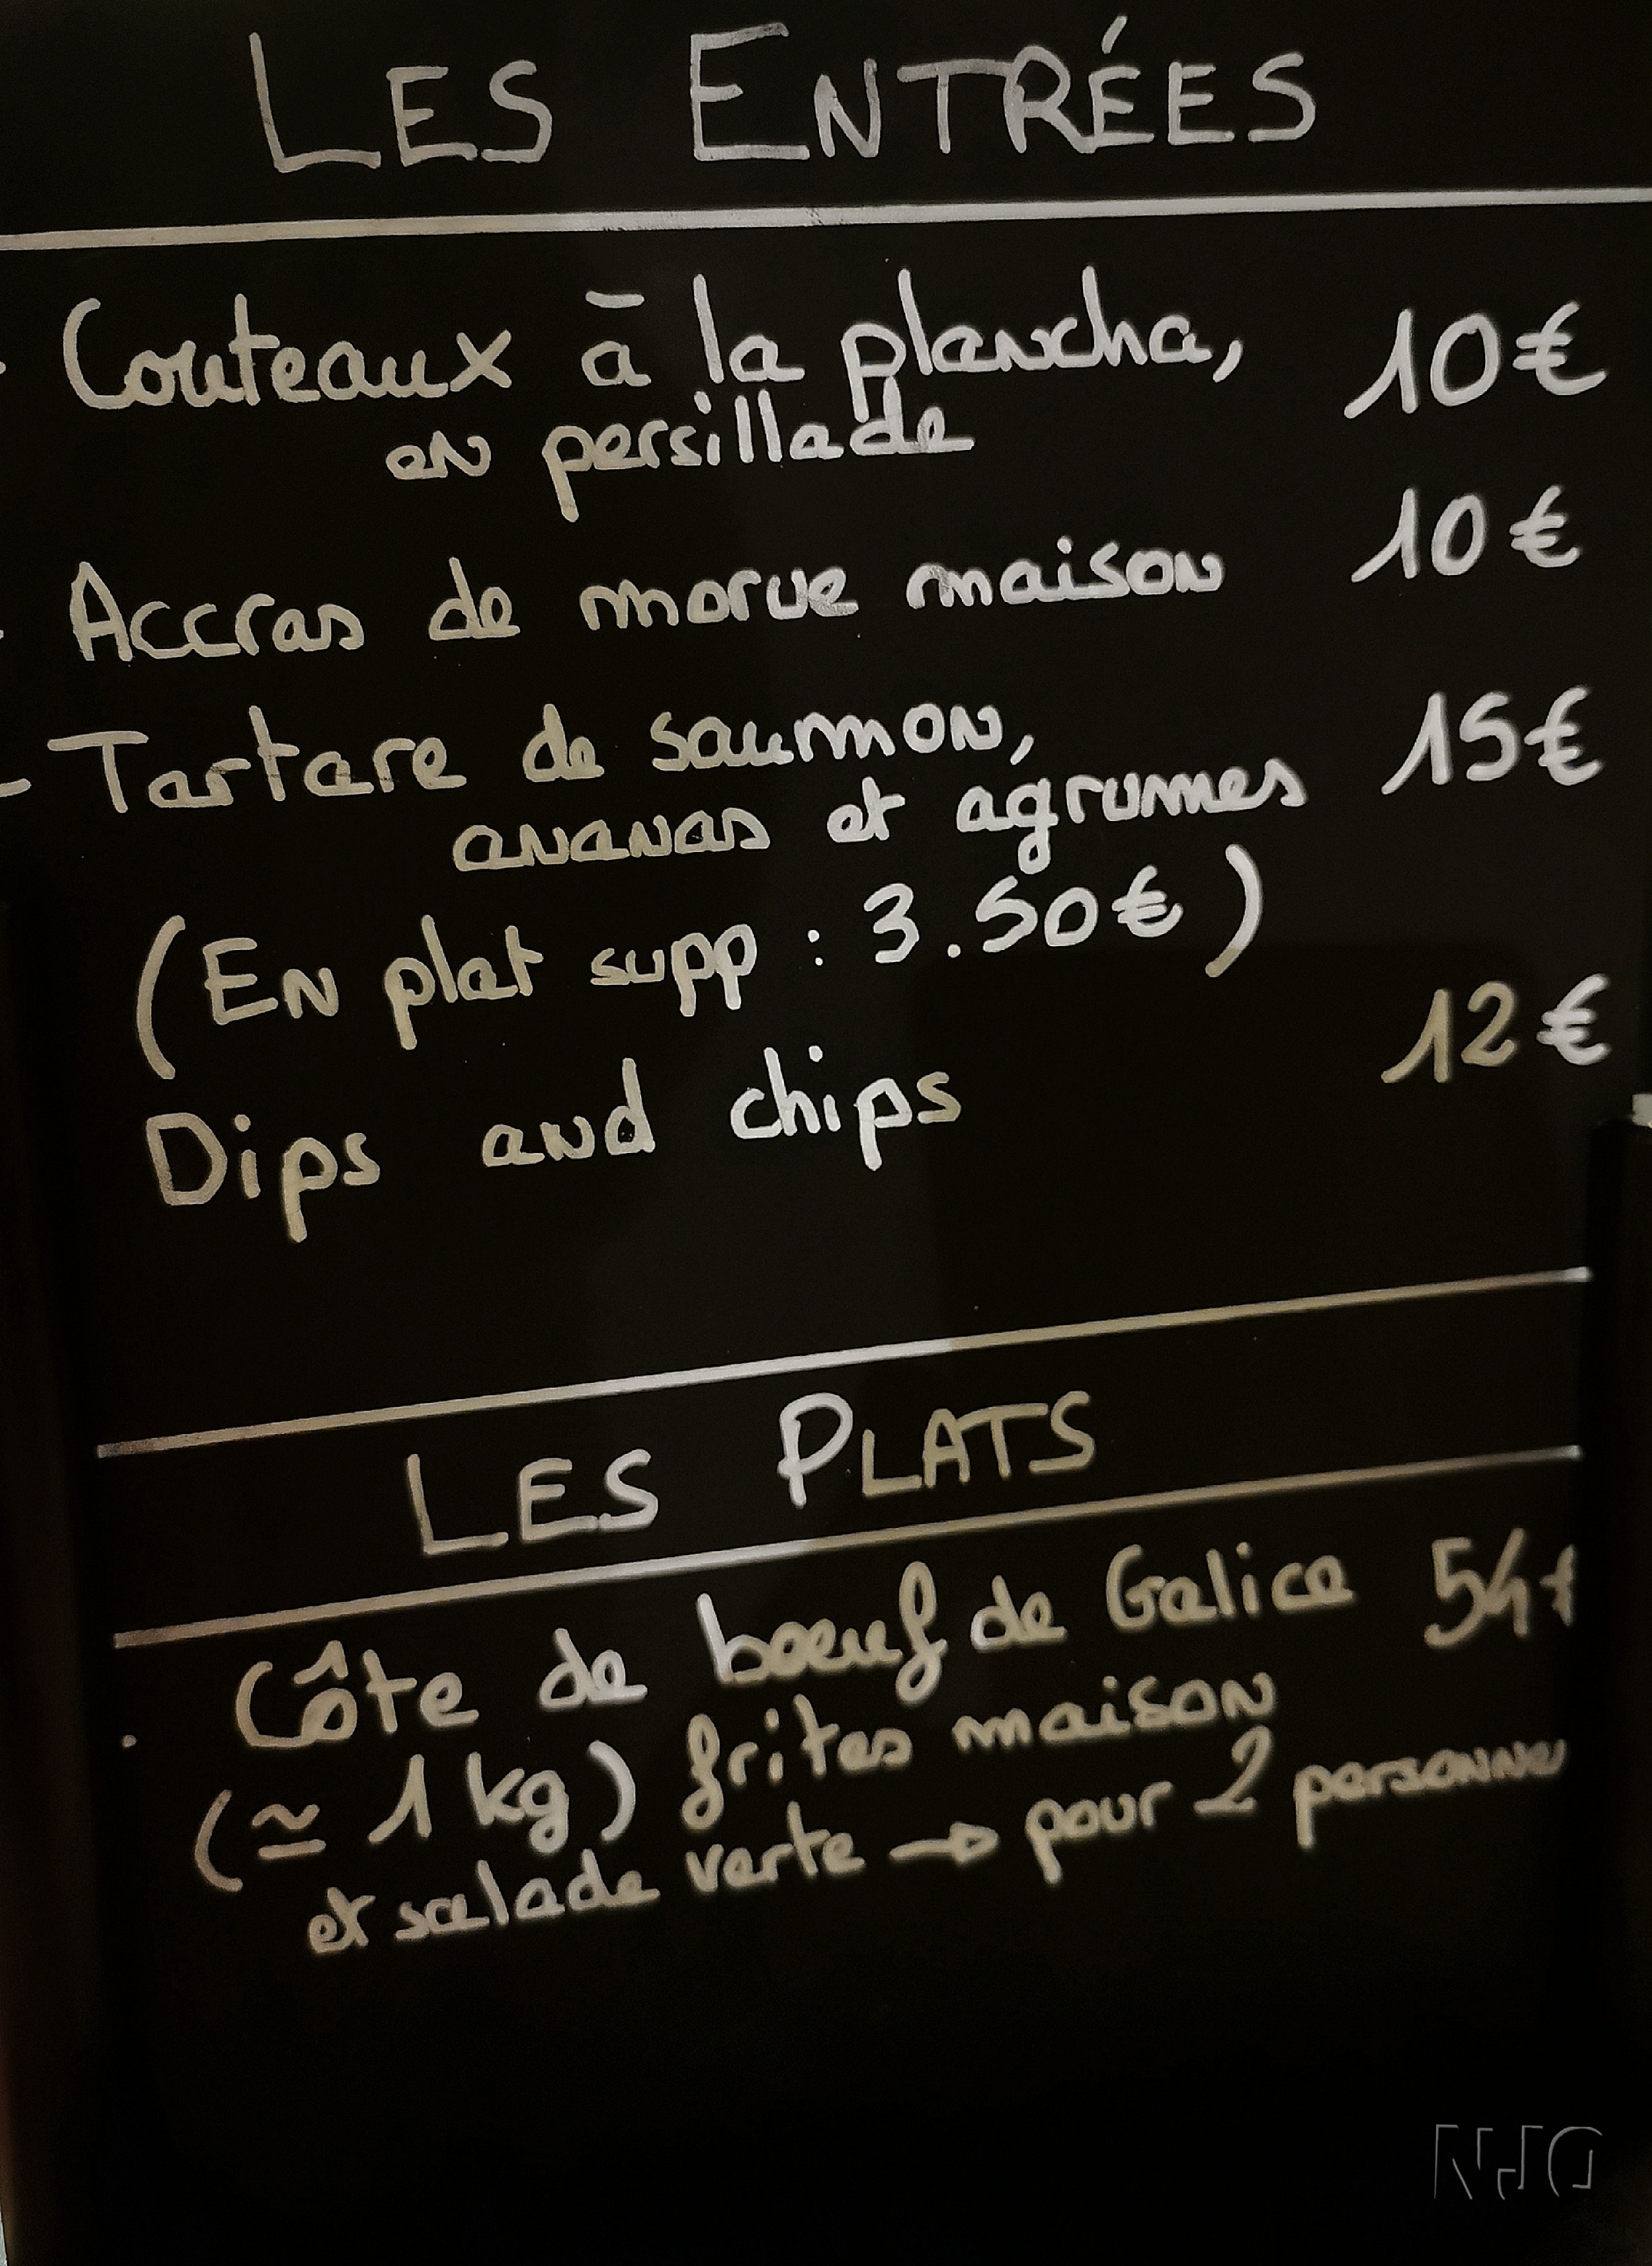 LES ENTRÉES
- Couteaux à la plancha, 10€
en persillade
- Accras de morue maison 10€
- Tartare de saumon, 15€
ananas et agrumes
(En plat supp : 3.50€)
Dips and chips 12€
LES PLATS
. Côte de boeuf de Galice 54€
(≃ 1 kg) frites maison
et salade verte → pour 2 personnes
NJG